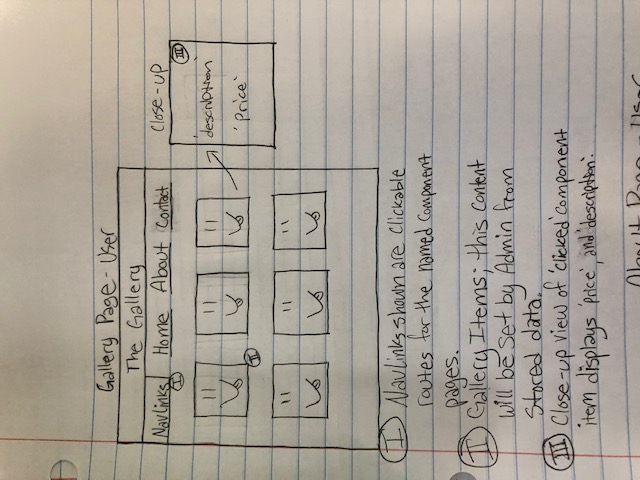 Gallery Page - User
The Gallery
NavLinks Home About Contact
I
Close-up
III
'description'
'price'
II
I NavLinks shown are clickable
routes for the named component
pages.
II Gallery Items; this content
will be set by Admin from
stored data.
III Close-up view of 'clicked' component
item displays 'price', and 'description'.
About Page - User